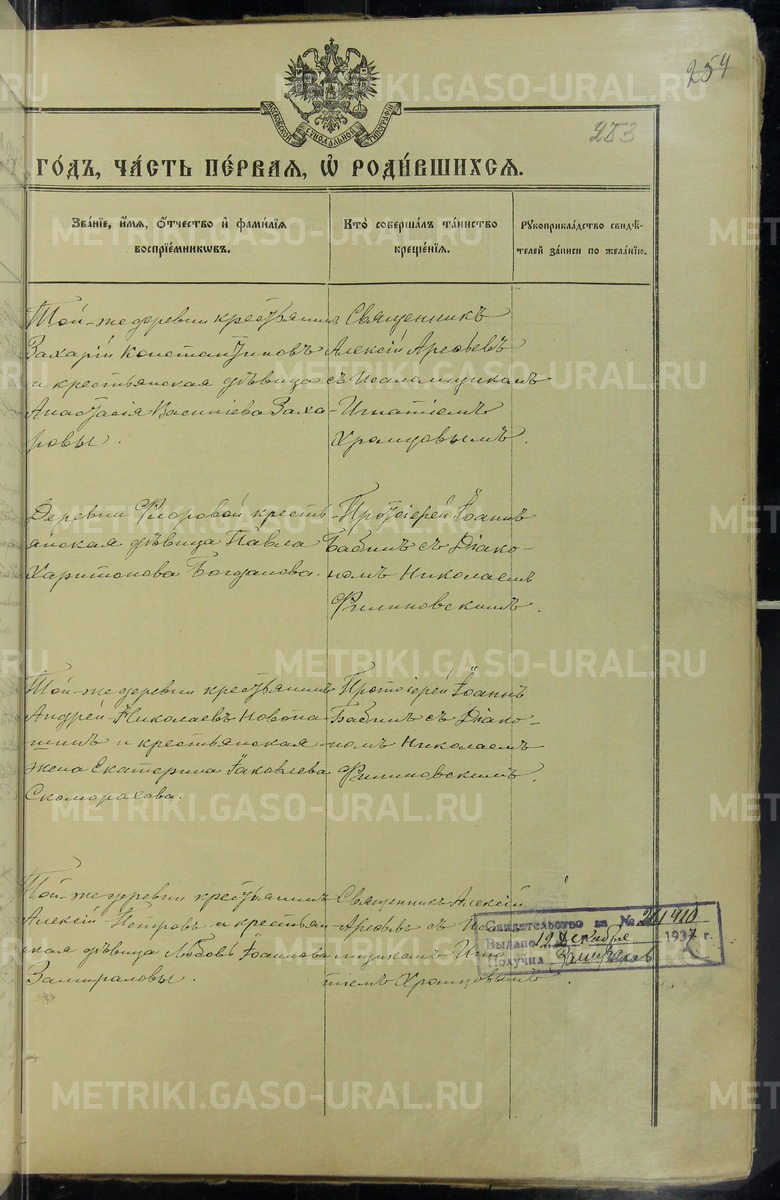 254
253
МОСКОВСКОЙ СѴНОДАЛЬНОЙ ТИПОГРАФІИ
ГОДЪ, ЧАСТЬ ПЕРВАЯ, Ѡ РОДИВШИХСЯ.
Званіе, имя, отчество и фамилія воспріемниковъ.
Кто совершалъ таинство крещенія.
Рукоприкладство свидѣтелей записи по желанію.
Той-же деревни крестьянинъ
Захарій Константиновъ
и крестьянская дѣвица
Анастасія Василіева Заха-
ровы.
Священникъ
Алексій Арефьевъ
съ Псаломщикомъ
Игнатіемъ
Хромцовымъ.
Деревни Фроровой кресть-
янская дѣвица Павла
Харитонова Богданова.
Протоіерей Іоаннъ
Бабинъ съ Діако-
номъ Николаемъ
Филиновскимъ.
Той-же деревни крестьянинъ
Андрей Николаевъ Новопа-
шинъ и крестьянская
жена Екатерина Іаковлева
Скоморохова.
Протоіерей Іоаннъ
Бабинъ съ Діако-
номъ Николаемъ
Филиновскимъ.
Той-же деревни крестьянинъ
Алексій Петровъ и крестьян-
ская дѣвица Любовь Іоаннова
Замираловы.
Священникъ Алексій
Арефьевъ съ Пса-
ломщикомъ Игна-
тіемъ Хромцовымъ.
Свидетельство за №
Выдано 19 декабря 1937 г.
Получил
METRIKI.GASO-URAL.RU